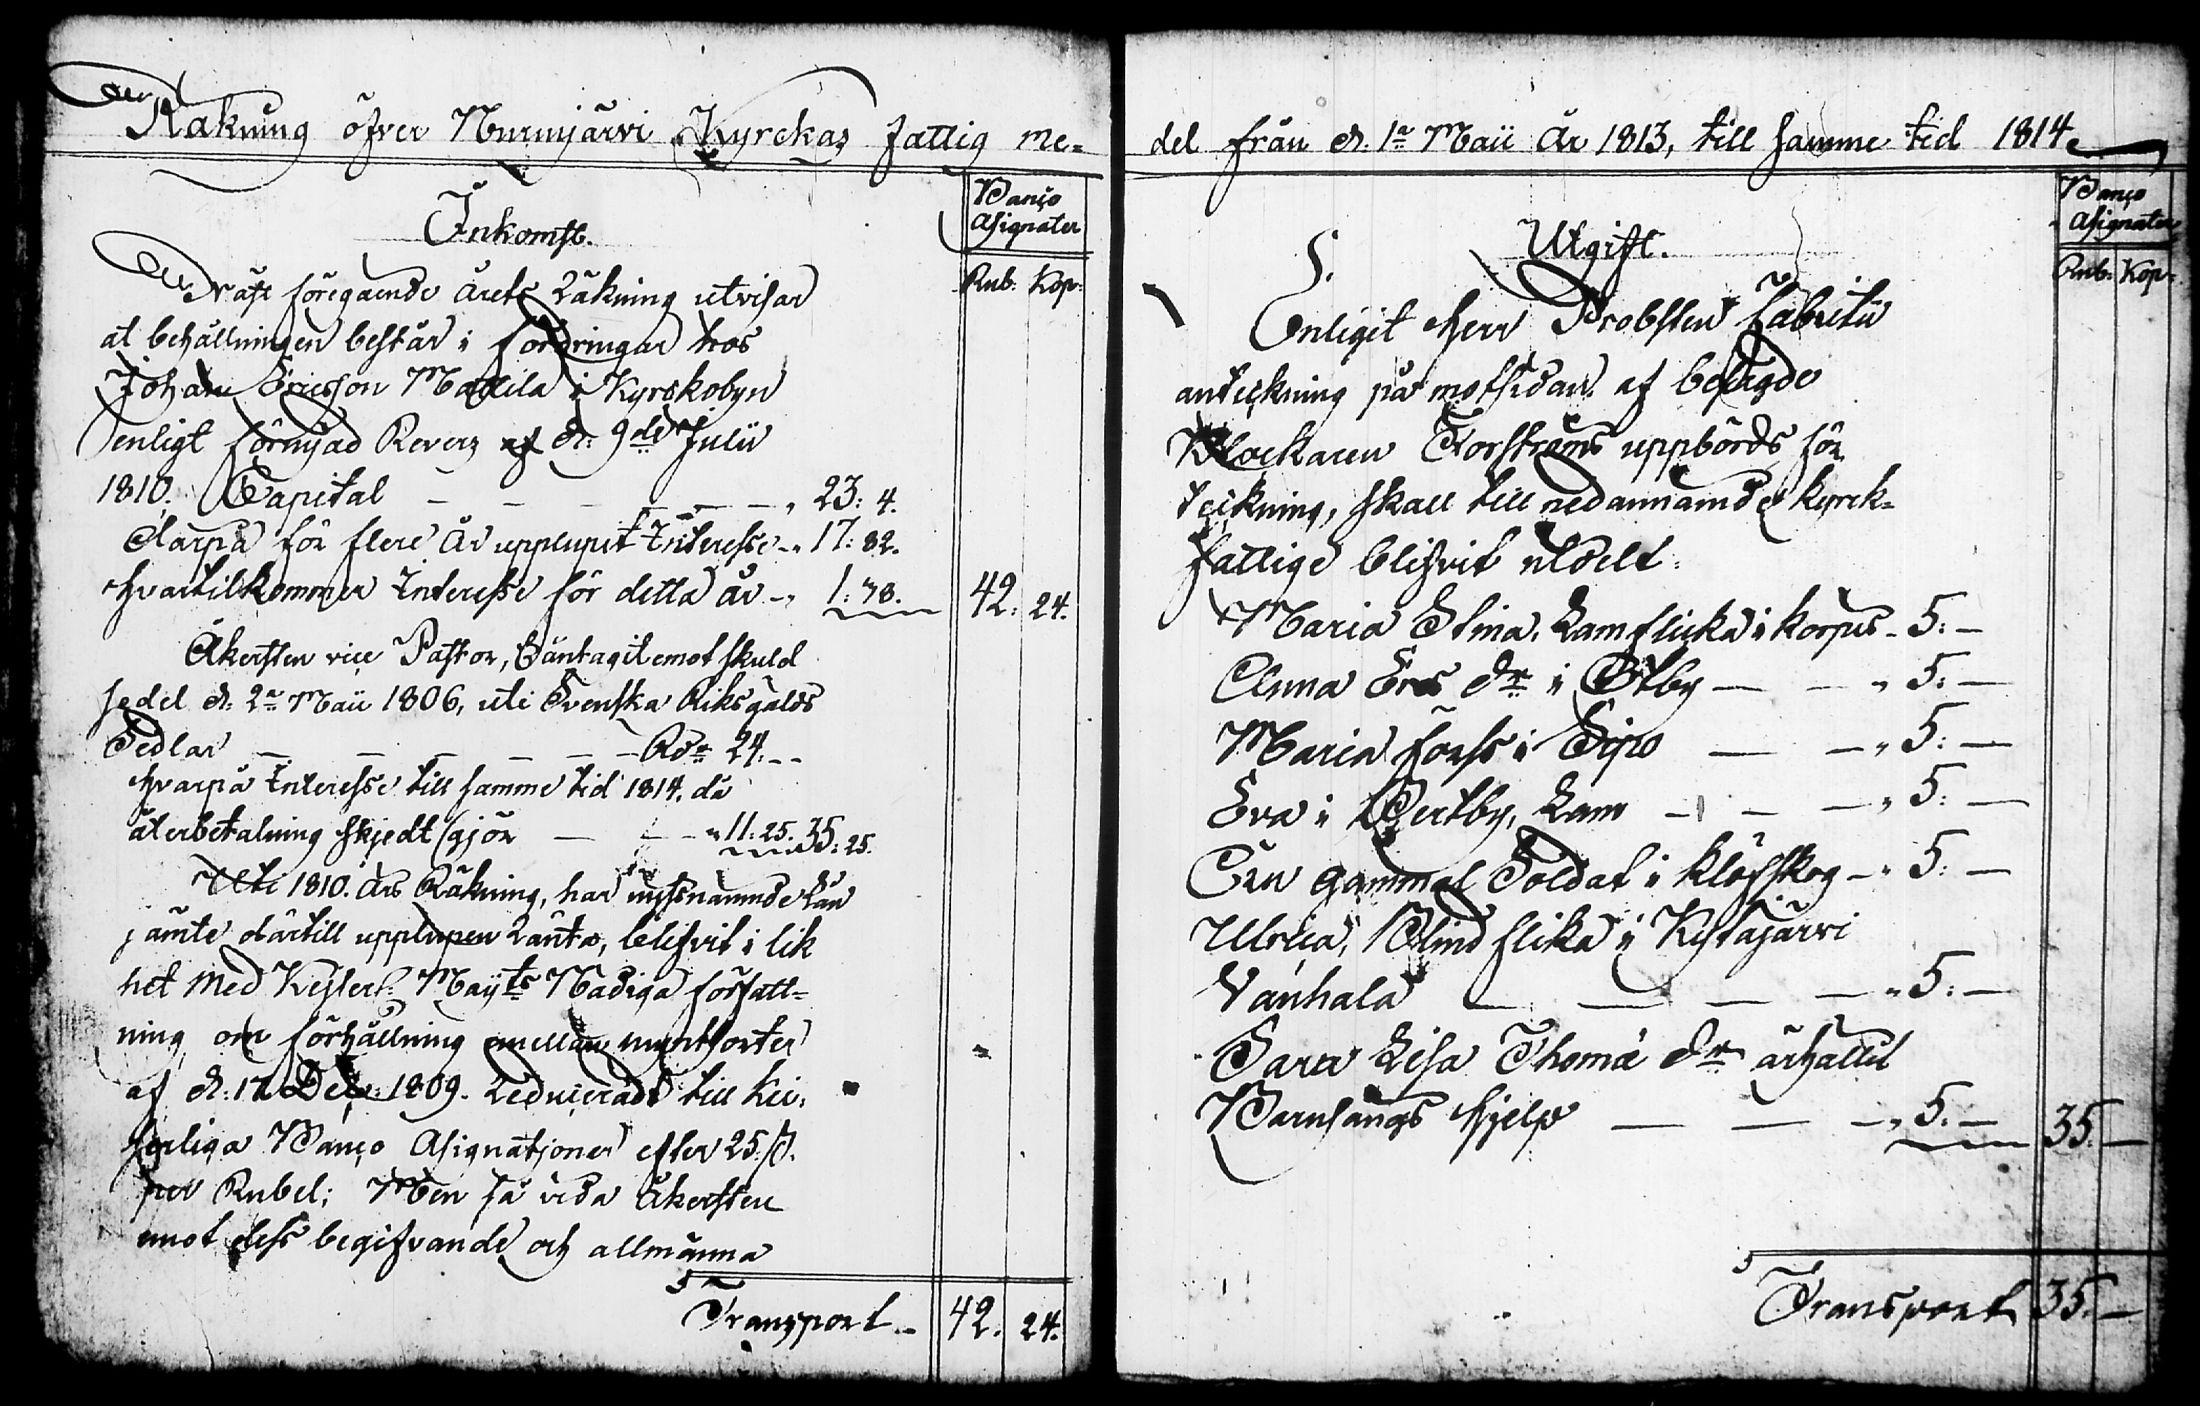 Räkning öfver Nurmijärvi Kyrckas fattig me=
Inkomst.
Banço
Asignater
Rub: Kop:
föregående årets Räkning utvisar
at behållningen består i fordringar hos
Johan Ericsson Mattila i Kyrckobyn
enligt förnyad Revers af d: 9de Julii
1810. Capital — — — — 23: 4.
därpå för flere år upplupit Interesse — 17: 82.
hvartilkommer Interesse för detta år — 1: 38. 42: 24.
Åkersten vice Pastor, antagit emot skuld
sedel d: 2a Maii 1806, uti Svenska Riksgälds
Sedlar — — — — — Rdr 24: —
hvarpå Interesse till samme tid 1814, då
återbetalning skjedt gjör — — 11: 25. 35: 25.
Uti 1810. års Räkning, har nyssnämnde lån
jämte därtill upplupen Ränta, blifvit i lik
het med Kejserl: Mayts Nådiga författ=
ning om förhållning mellan myntsorter
af d: 17 Dec: 1809. Reducerade till Kei:
serliga Banço Asignatjoner efter 25 ß.
per Rubel; Men så vida Åkersten
emot dess begifvande och allmänna
Transport — 42. 24.
del från d. 1a Maii År 1813, till samme tid 1814.
Utgift.
Banço
Asignater
Rub: Kop:
Enligit Herr Probsten Fabritii
anteckning på motsidan af
Klockaren Forstroms uppbörds för
teckning, skall till nedannämde kyrck=
fattige blifvit utdelt:
Maria Stina, Lam flicka i Korpus — 5: —
Anna Ers dr i Ötby — — 5: —
Maria Forss i Sipo — — 5: —
Eva i Pertby, Lam — — — 5: —
En gammal Soldat i Klöfskog — 5: —
Ulrica, Blind flika i
Vanhala — — — — 5: —
Sara Lisa Thomæ dr ärhallit
Barnsängs hjelp — — — 5: — 35. —
Transport 35. —